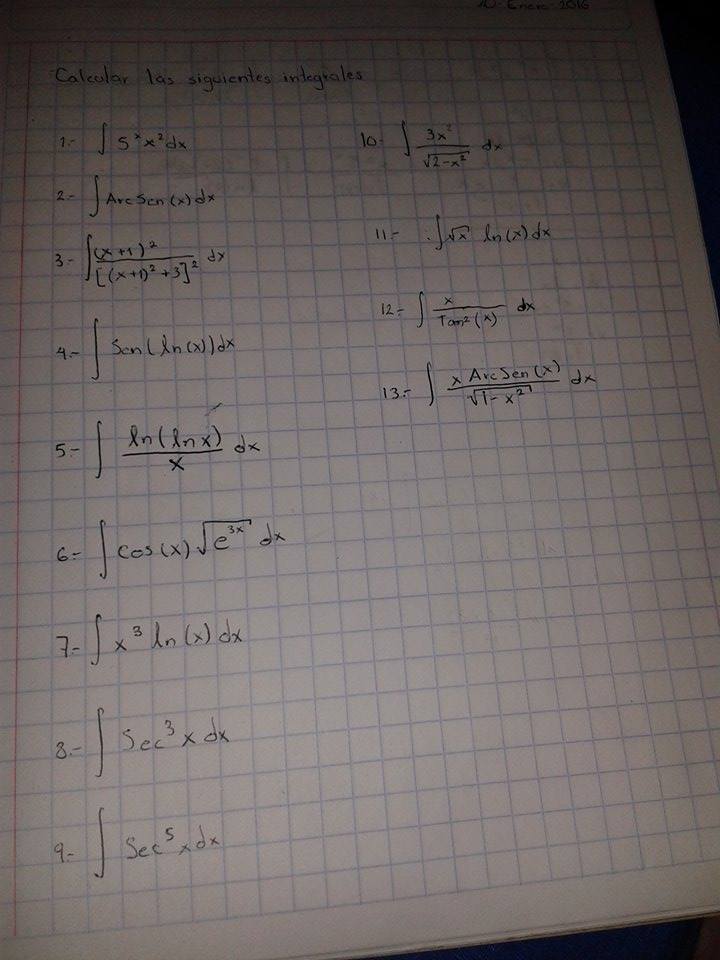 10 Enero 2016
Calcular las siguientes integrales
1.- ∫ 5ˣ x² dx
2.- ∫ ArcSen (x) dx
3.- ∫ (x+1)² / [(x+1)² + 3]² dx
4.- ∫ Sen (ln(x)) dx
5.- ∫ ln(lnx) / x dx
6.- ∫ cos(x) √(e³ˣ) dx
7.- ∫ x³ ln(x) dx
8.- ∫ Sec³ x dx
9.- ∫ Sec⁵ x dx
10.- ∫ 3x² / √(2-x²) dx
11.- ∫ √x ln(x) dx
12.- ∫ x / Tan²(x) dx
13.- ∫ x ArcSen(x) / √(1-x²) dx